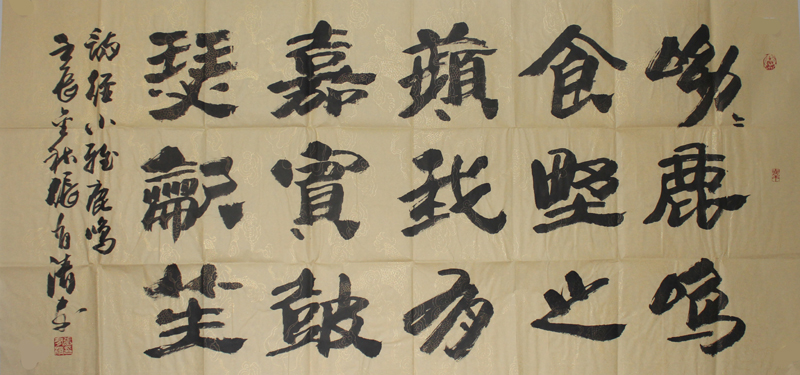 呦々鹿鳴
食野之
蘋我有
嘉賓皷
瑟龡笙
詩經小雅鹿鳴
壬辰金秋張有清書